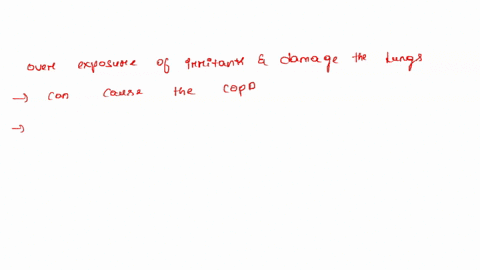 over exposure of irritants & damage the lungs
→ can cause the COPD
→